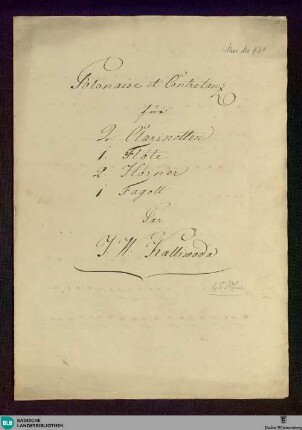 Mus. Hs. 981
Polonaise et Contretanz
für
2 Clarinetten
1 Flöte
2 Hörner
1 Fagott
Par
J. W. Kalliwoda
BLB BADISCHE
LANDESBIBLIOTHEK
Baden-Württemberg